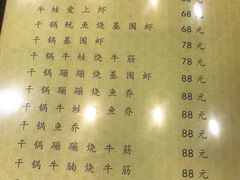 牛蛙爱上虾 68元
干锅鱿鱼烧基围虾 68元
干锅基围虾 78元
干锅牛蛙烧牛筋 78元
干锅蹦蹦烧基围虾 88元
干锅牛蛙烧鱼乔 88元
干锅鱼乔 88元
干锅蹦蹦烧鱼乔 88元
干锅蹦蹦烧牛筋 88元
干锅牛腩烧牛筋 88元